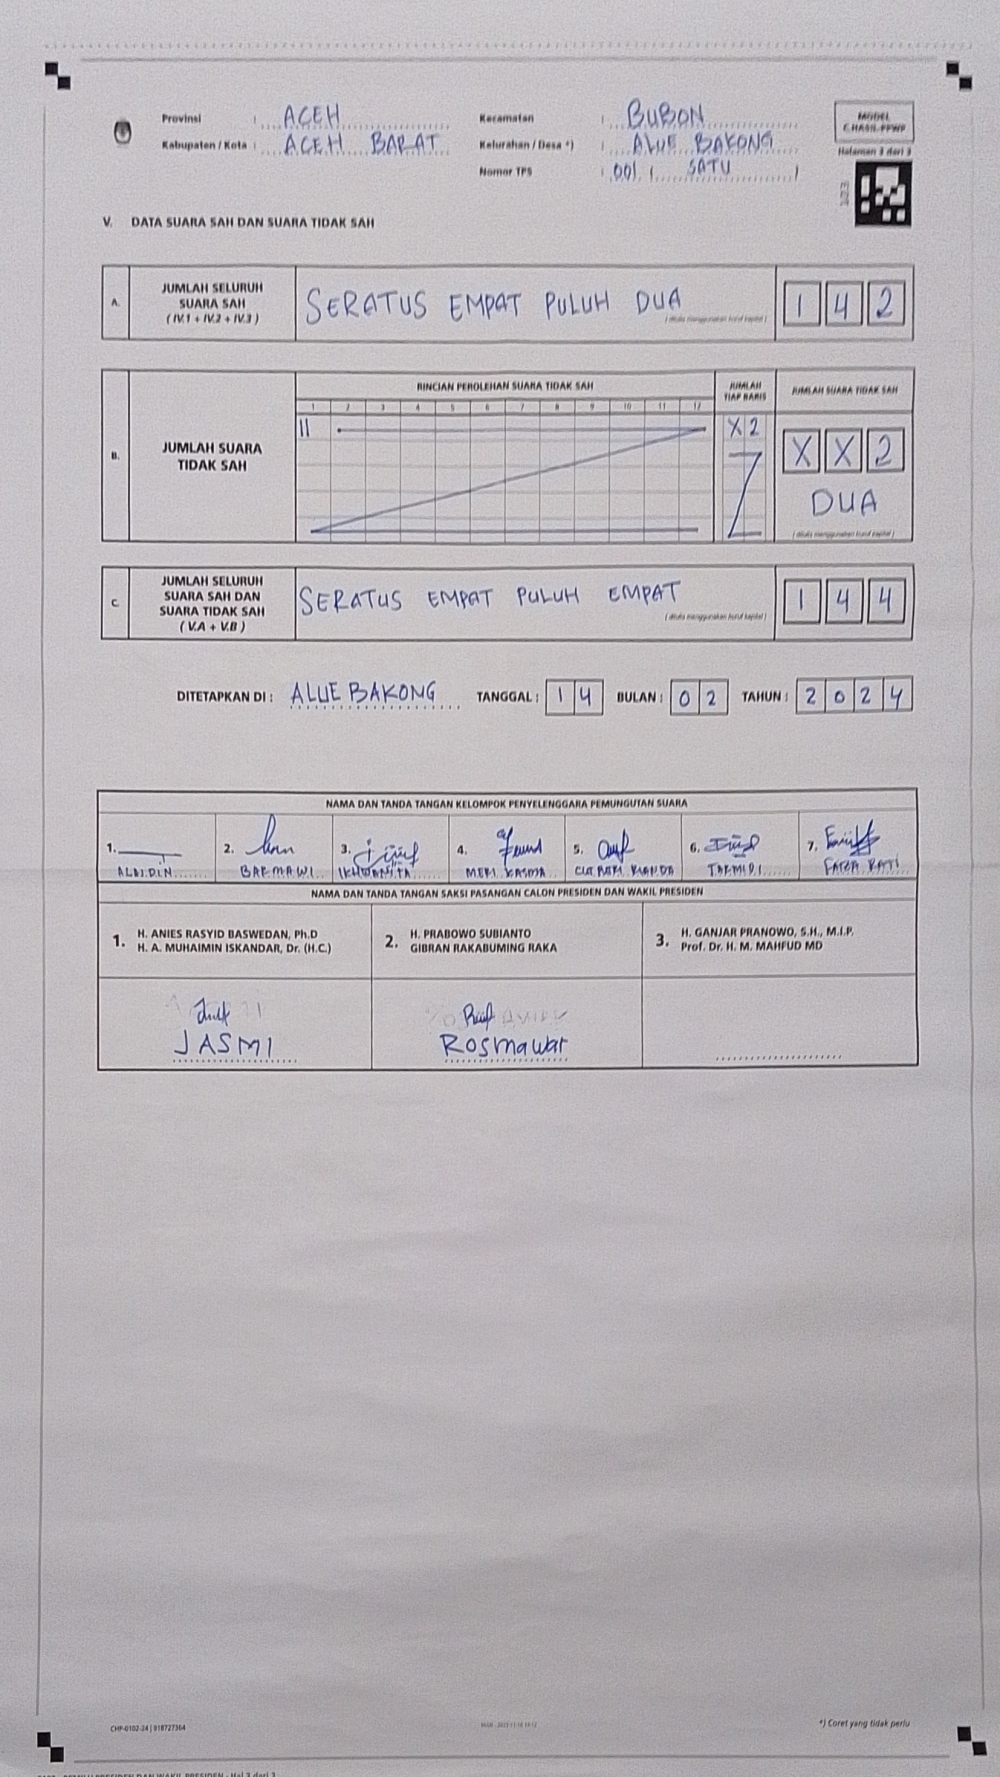 Provinsi : ACEH
Kabupaten / Kota : ACEH BARAT
Kecamatan : BUBON
Kelurahan / Desa *) : ALUE BAKONG
Nomor TPS : 001 ( SATU )
MODEL
C.HASIL-PPWP
Halaman 3 dari 3
V. DATA SUARA SAH DAN SUARA TIDAK SAH
A. JUMLAH SELURUH
SUARA SAH
( IV.1 + IV.2 + IV.3 )
SERATUS EMPAT PULUH DUA
( ditulis menggunakan huruf kapital )
1 4 2
B. JUMLAH SUARA
TIDAK SAH
RINCIAN PEROLEHAN SUARA TIDAK SAH
1 2 3 4 5 6 7 8 9 10 11 12
JUMLAH
TIAP BARIS
X 2
JUMLAH SUARA TIDAK SAH
X X 2
DUA
( ditulis menggunakan huruf kapital )
C. JUMLAH SELURUH
SUARA SAH DAN
SUARA TIDAK SAH
( V.A + V.B )
SERATUS EMPAT PULUH EMPAT
( ditulis menggunakan huruf kapital )
1 4 4
DITETAPKAN DI : ALUE BAKONG TANGGAL : 1 4 BULAN : 0 2 TAHUN : 2 0 2 4
NAMA DAN TANDA TANGAN KELOMPOK PENYELENGGARA PEMUNGUTAN SUARA
1. 2. 3. 4. 5. 6. 7.
BARMAWI IKHWANITA MERI KASMA TARMIDI
NAMA DAN TANDA TANGAN SAKSI PASANGAN CALON PRESIDEN DAN WAKIL PRESIDEN
1. H. ANIES RASYID BASWEDAN, Ph.D
H. A. MUHAIMIN ISKANDAR, Dr. (H.C.)
2. H. PRABOWO SUBIANTO
GIBRAN RAKABUMING RAKA
3. H. GANJAR PRANOWO, S.H., M.I.P.
Prof. Dr. H. M. MAHFUD MD
JASMI
Rosmawar
CHP-0102-24 | 918727364
*) Coret yang tidak perlu